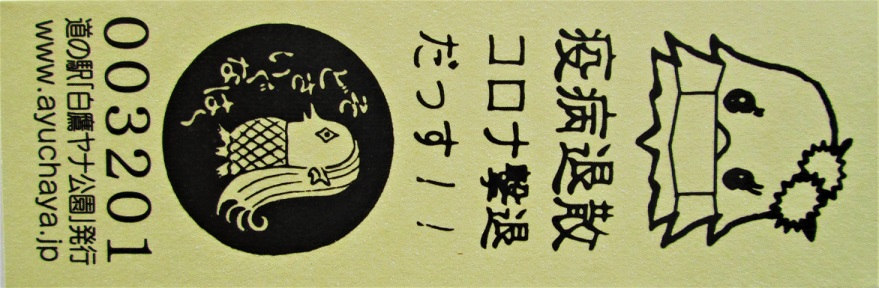 疫病退散
コロナ撃退
だっす！！
そどさ
いぐ
なは〜
003201
道の駅「白鷹ヤナ公園」発行
www.ayuchaya.jp